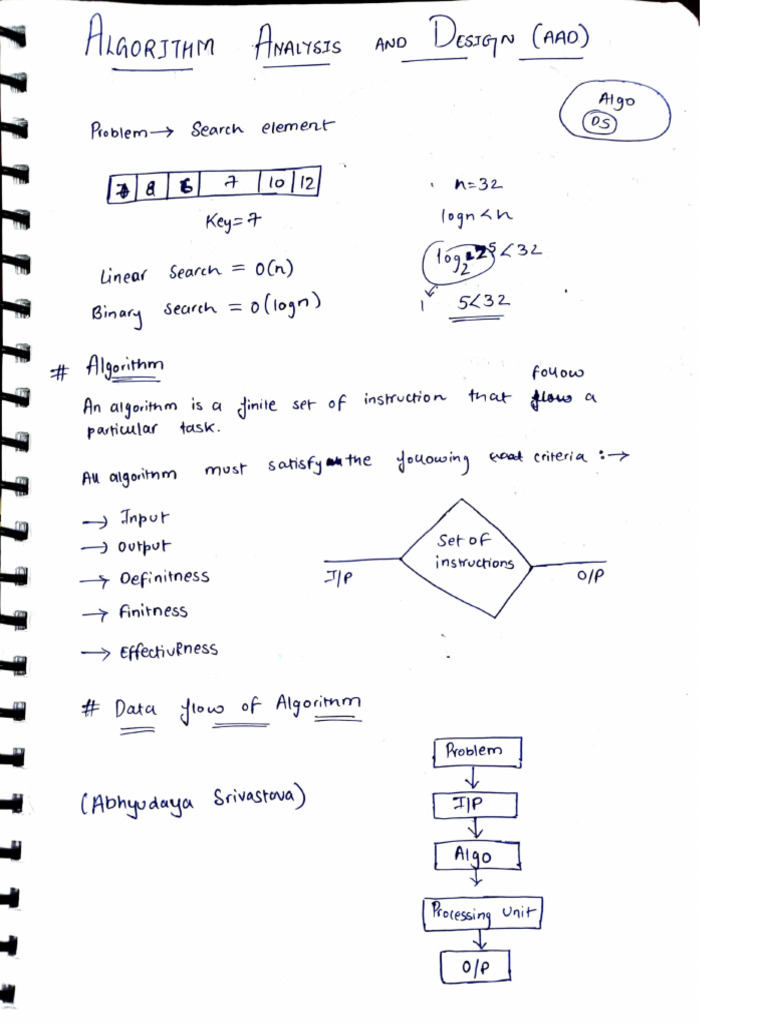 ALGORITHM ANALYSIS AND DESIGN (AAD)
Algo
DS
Problem → Search element
8 6 7 10 12
Key = 7
n = 32
logn < n
Linear Search = O(n)
Binary Search = O(logn)
log₂ 2⁵ < 32
1 5 < 32
# Algorithm
An algorithm is a finite set of instruction that follow a
particular task.
All algorithm must satisfy the following criteria :→
→ Input
→ Output
→ Definitness
→ Finitness
→ Effectiveness
I/P
Set of
instructions
O/P
# Data flow of Algorithm
(Abhyudaya Srivastava)
Problem
I/P
Algo
Processing Unit
O/P